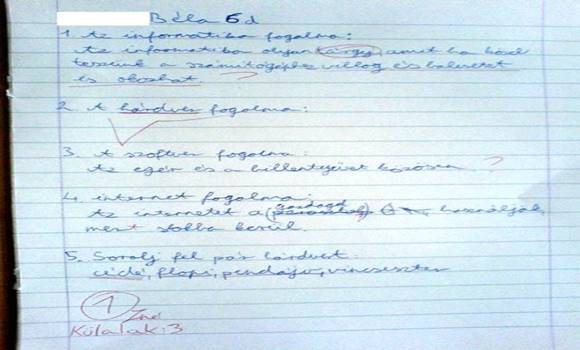 Béla 6d
1. Az informatika fogalma:
Az informatika olyan tárgy, amit ha közel
teszünk a számítógéphez villog és balesetet
is okozhat. ?
2. A hárdver fogalma:
3. A szoftver fogalma:
Az egér és a billentyűzet közösen ?
4. internet fogalma:
gazdagok
Az internetet a használják,
mert sokba kerül.
5. Sorolj fel pár hárdvert:
cédé, flopi, pendájv, vincseszter
1
Külalak: 3